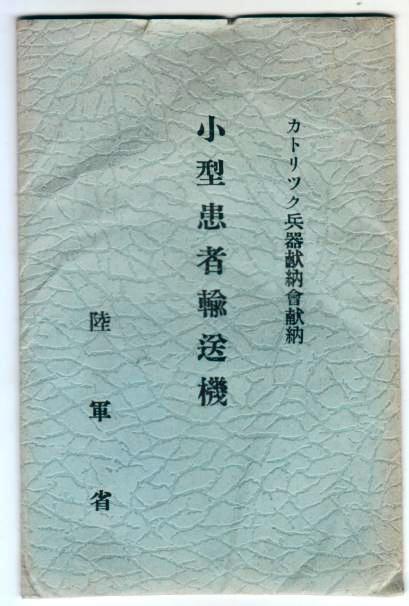 カトリツク兵器献納會献納
小型患者輸送機
陸軍省